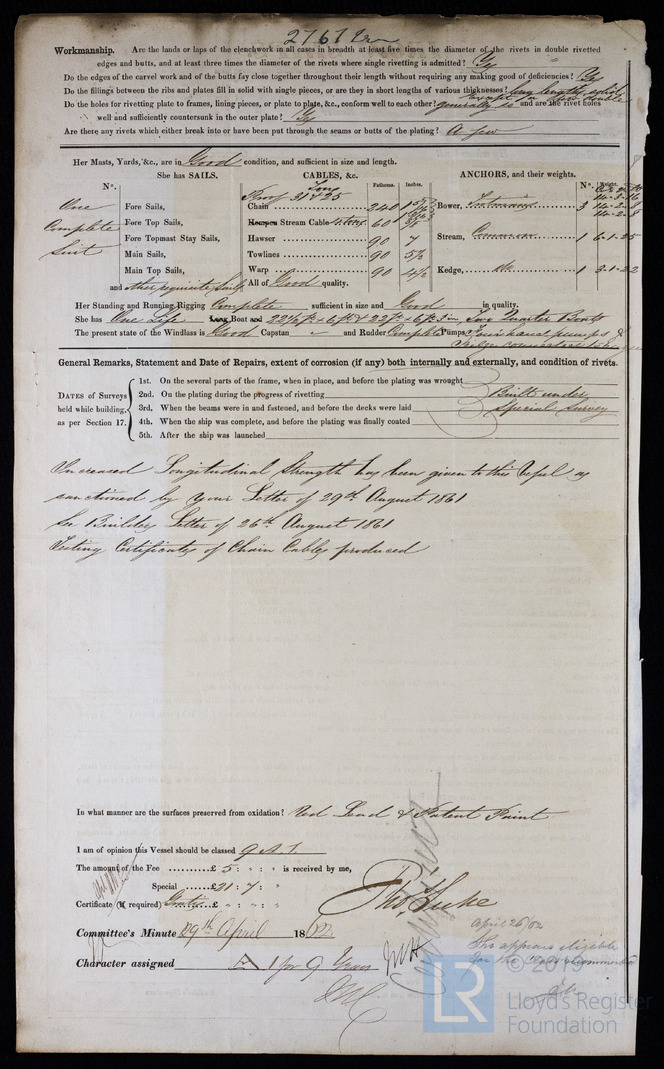 Workmanship. Are the lands or laps of the clenchwork in all cases in breadth at least five times the diameter of the rivets in double rivetted
edges and butts, and at least three times the diameter of the rivets where single rivetting is admitted? Yes
Do the edges of the carvel work and of the butts fay close together throughout their length without requiring any making good of deficiencies? Yes
Do the fillings between the ribs and plates fill in solid with single pieces, or are they in short lengths of various thicknesses? long lengths solid
Do the holes for rivetting plate to frames, lining pieces, or plate to plate, &c., conform well to each other? generally so and are the rivet holes
well and sufficiently countersunk in the outer plate? Yes
Are there any rivets which either break into or have been put through the seams or butts of the plating? A few
Her Masts, Yards, &c., are in Good condition, and sufficient in size and length.
She has SAILS. CABLES, &c. ANCHORS, and their weights.
N°. Fathoms. Inches. N°. Weight.
Proof 31 & 25 Tons
One Complete Suit
Fore Sails, Chain 240 Bower, 3
Fore Top Sails, Hempen Stream Cable 60
Fore Topmast Stay Sails, Hawser 90 7 Stream, Common 1 6-1-25
Main Sails, Towlines 90 5½
Main Top Sails, Warp 90 4½ Kedge, do 1 3-1-22
and other requisite Sails All of Good quality.
Her Standing and Running Rigging Complete sufficient in size and Good in quality.
She has One Life Long Boat and 22½ft × 6ft & 22ft × 6ft 3in Two Quarter Boats
The present state of the Windlass is Good Capstan " and Rudder Complete Pumps Four hand pumps &
General Remarks, Statement and Date of Repairs, extent of corrosion (if any) both internally and externally, and condition of rivets.
DATES of Surveys held while building, as per Section 17.
1st. On the several parts of the frame, when in place, and before the plating was wrought
2nd. On the plating during the progress of rivetting Built under
3rd. When the beams were in and fastened, and before the decks were laid Special Survey
4th. When the ship was complete, and before the plating was finally coated
5th. After the ship was launched
Increased Longitudinal Strength has been given to this Vessel as
sanctioned by your Letter of 29th August 1861
See Builders Letter of 26th August 1861
Testing Certificates of Chain Cables produced
In what manner are the surfaces preserved from oxidation? Red Lead & Patent Paint
I am of opinion this Vessel should be classed 9 A 1
The amount of the Fee £ 5 : " : " is received by me,
Special £21 : 7 : "
Certificate (if required) Gratis £ " : " : "
Thos. Luke
Committee's Minute 29th April 1862
April 26/62
This appears eligible
for the Class recommended
Character assigned A 1 for 9 Years
© 2019
LR
Lloyd's Register
Foundation